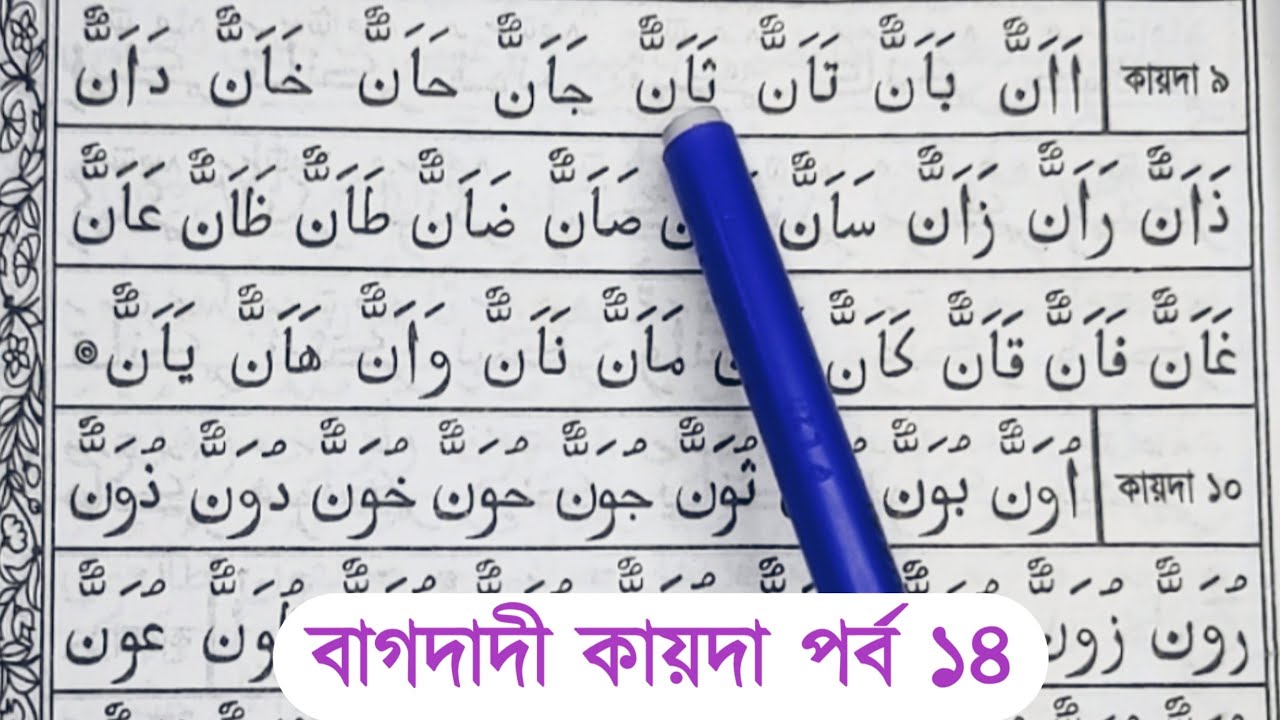 কায়দা ৯ اَاَنٌّ بَاَنٌّ تَاَنٌّ ثَاَنٌّ جَاَنٌّ حَاَنٌّ خَاَنٌّ دَاَنٌّ
ذَاَنٌّ رَاَنٌّ زَاَنٌّ سَاَنٌّ صَاَنٌّ ضَاَنٌّ طَاَنٌّ ظَاَنٌّ عَاَنٌّ
غَاَنٌّ فَاَنٌّ قَاَنٌّ كَاَنٌّ مَاَنٌّ نَاَنٌّ وَاَنٌّ هَاَنٌّ يَاَنٌّ
কায়দা ১০ اُوَنٌّ بُوَنٌّ ثُوَنٌّ جُوَنٌّ حُوَنٌّ خُوَنٌّ دُوَنٌّ ذُوَنٌّ
رُوَنٌّ زُوَنٌّ عُوَنٌّ
বাগদাদী কায়দা পর্ব ১৪